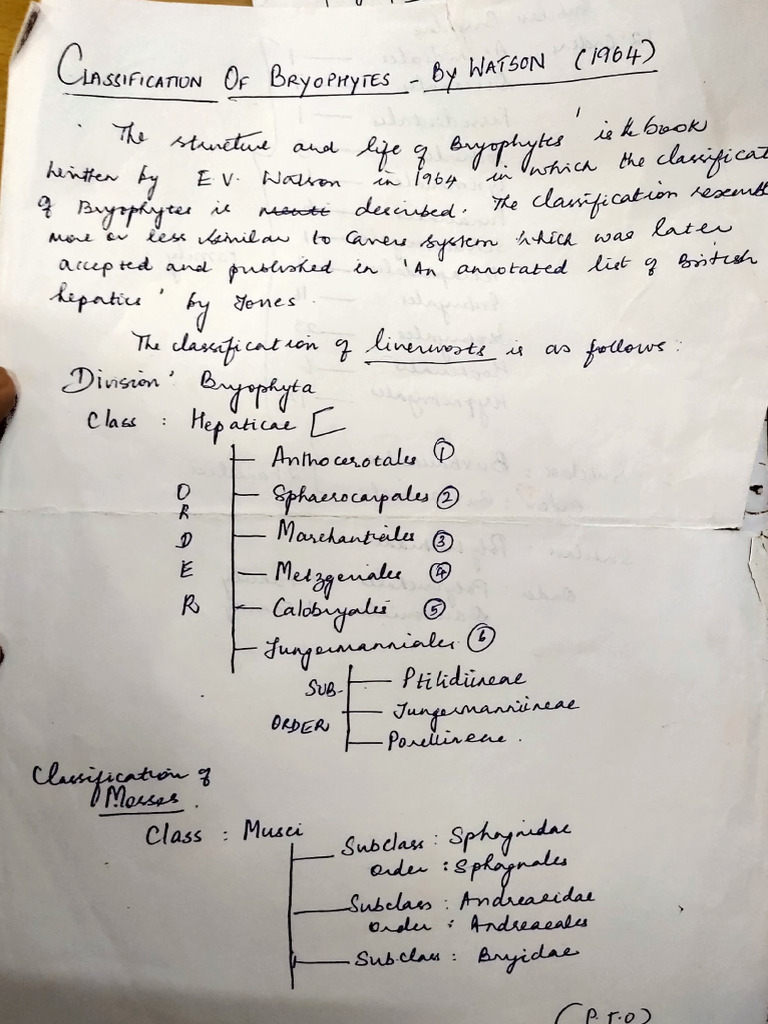 CLASSIFICATION OF BRYOPHYTES - BY WATSON (1964)
'The structure and life of Bryophytes' is the book
written by E.V. Watson in 1964 in which the classificat
of Bryophytes is described. The classification resembl
more or less similar to Cavers system which was later
accepted and published in 'An annotated list of British
hepatics' by Jones.
The classification of liverworts is as follows:
Division: Bryophyta
Class : Hepaticae [
Anthocerotales ①
ORDER
Sphaerocarpales ②
Marchantiales ③
Metzgeriales ④
Calobryales ⑤
Jungermanniales ⑥
SUB-ORDER
Ptilidiineae
Jungermanniineae
Porellineae.
Classification of
Mosses.
Class : Musci
Subclass : Sphagnidae
Order : Sphagnales
Subclass : Andreaeidae
Order : Andreaeales
Subclass : Bryidae
(P.T.O)